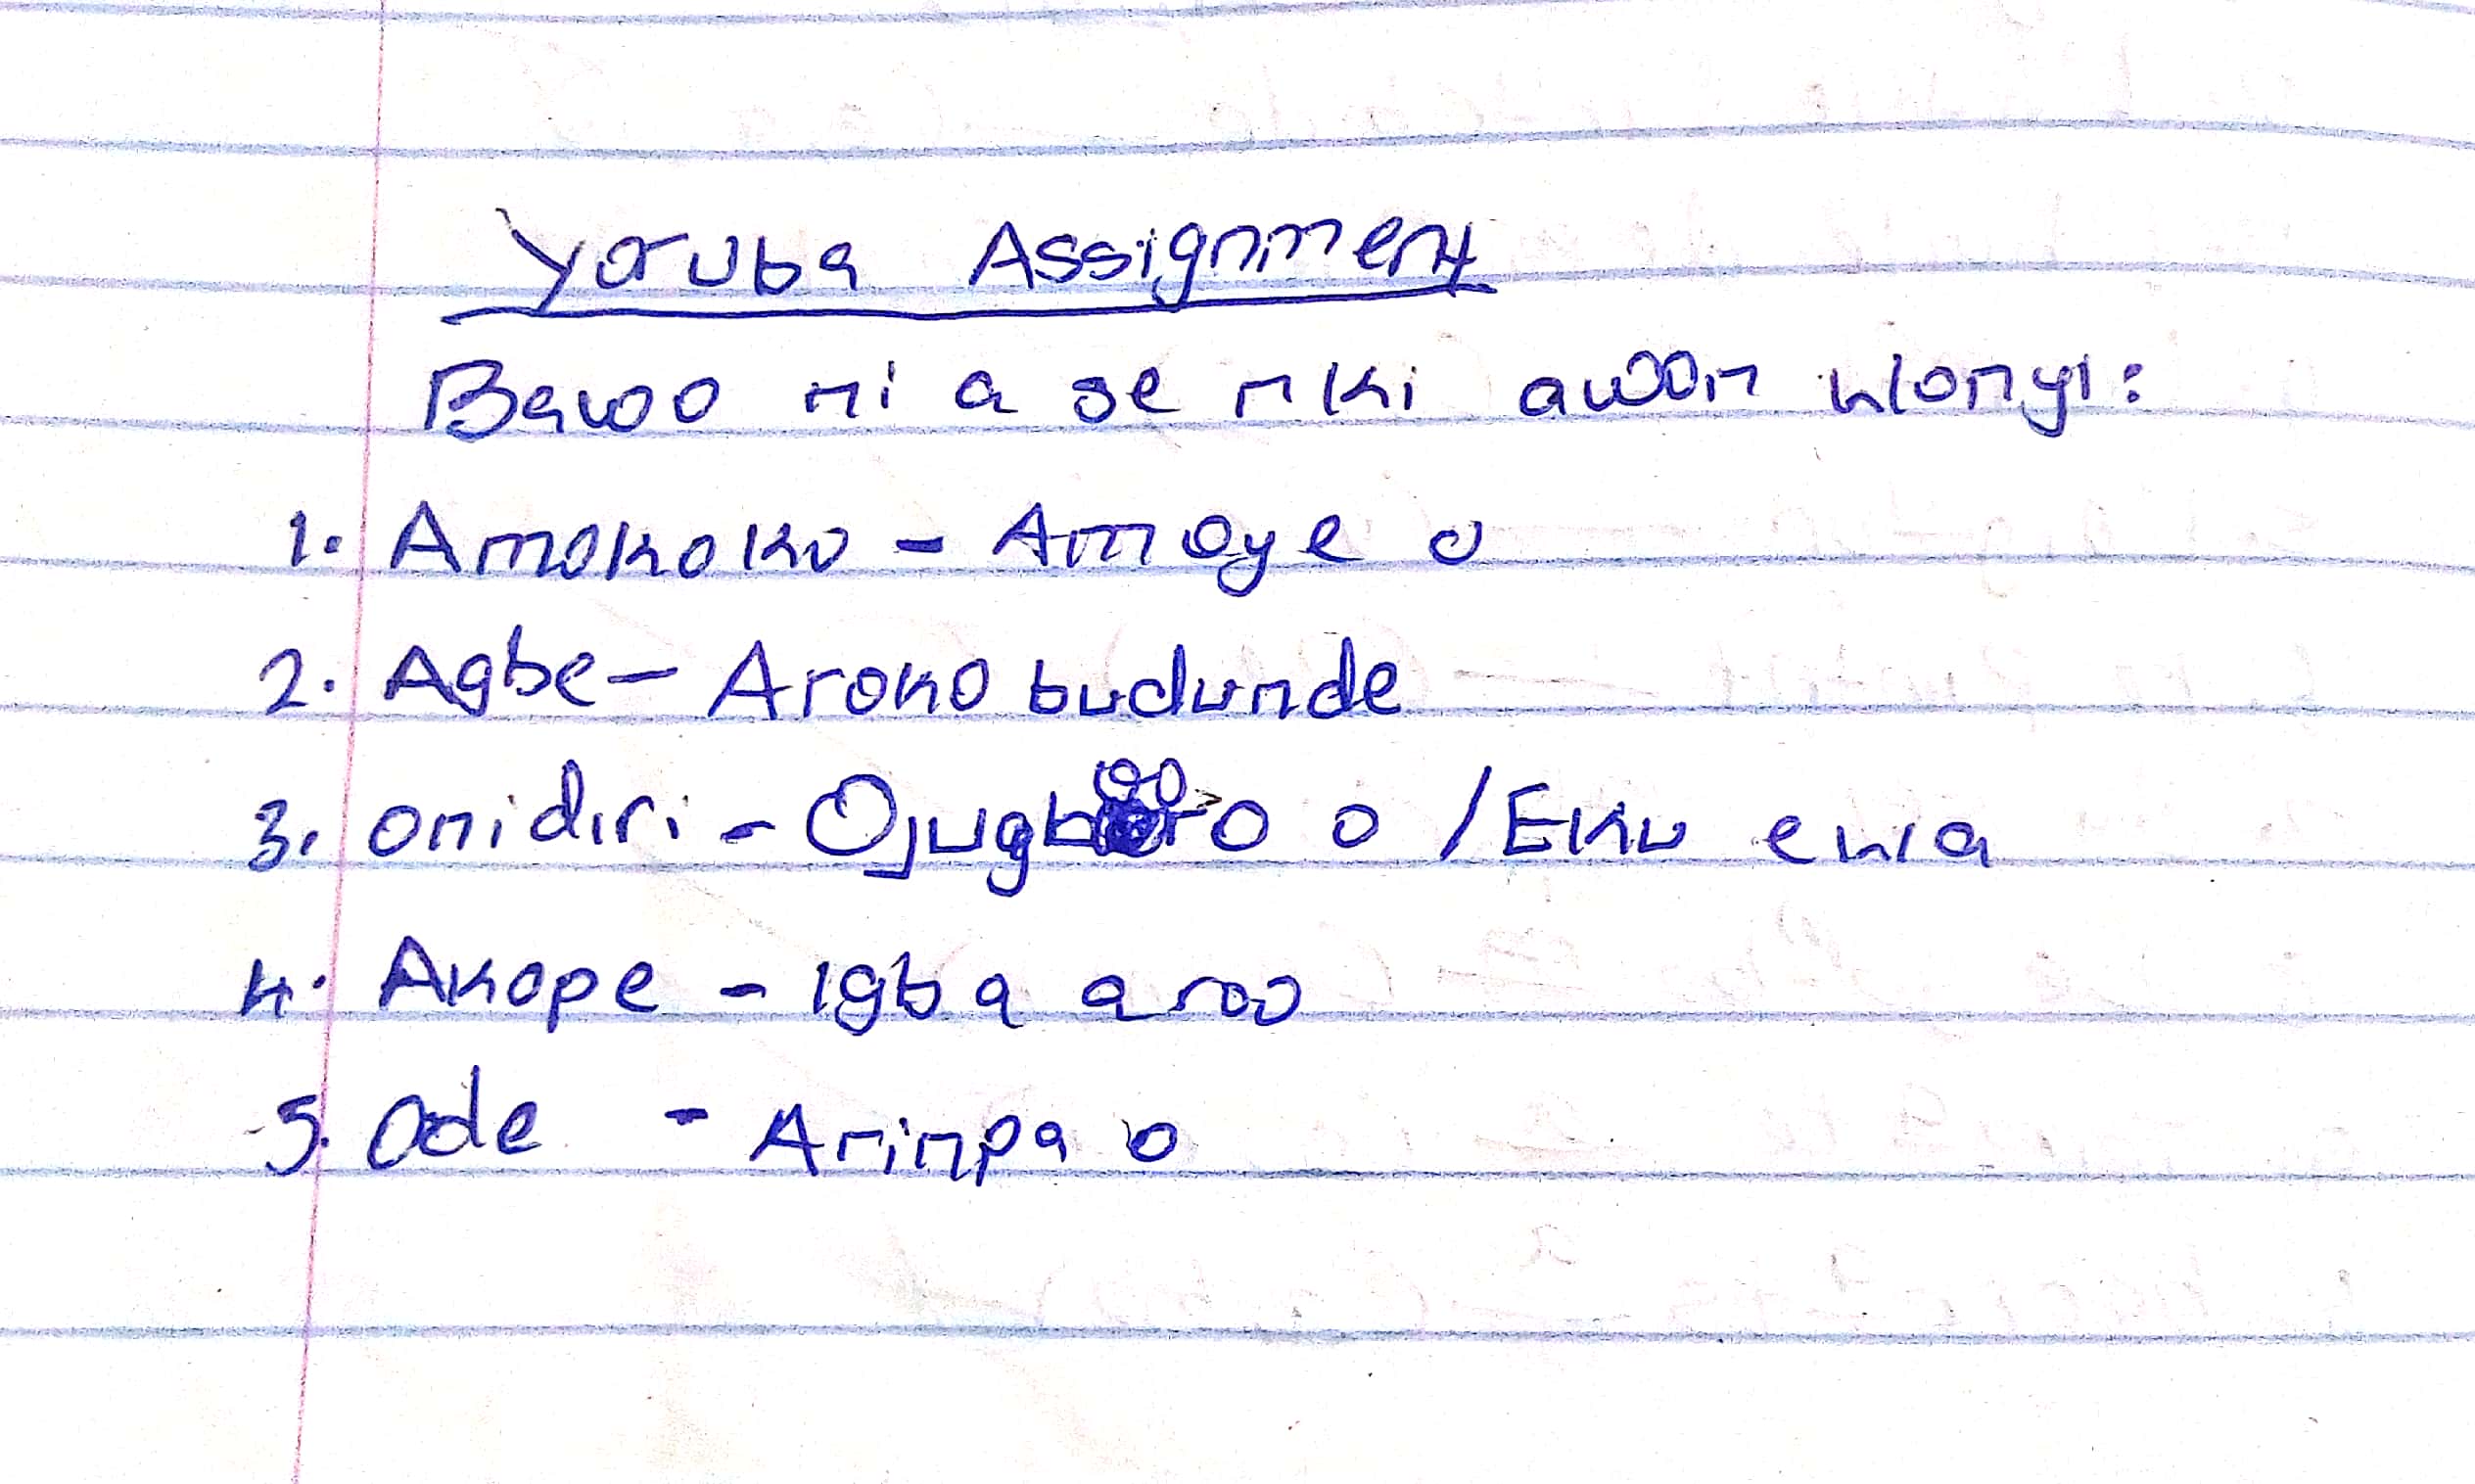 Yoruba Assignment
Bawo ni a se nki awon wonyi:
1. Amokoko - Amoye o
2. Agbe - Aroko budunde
3. onidiri - Ojugbooro o / Eku ewa
4. Akope - Igba a roo
5. Ode - Arinpa o